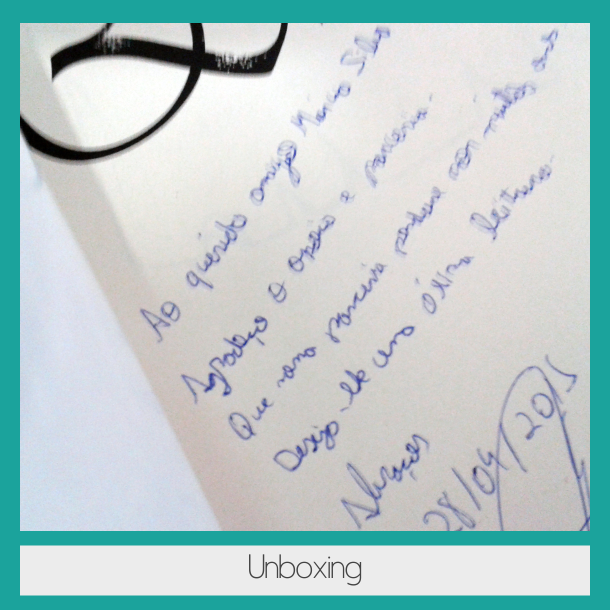 Ao querido amigo Márcio Silva
Agradeço o apoio e parceria.
Que nossa parceria perdure por muitos anos
Desejo-lhe uma ótima leitura.
Abraços
28/04/2015
Unboxing